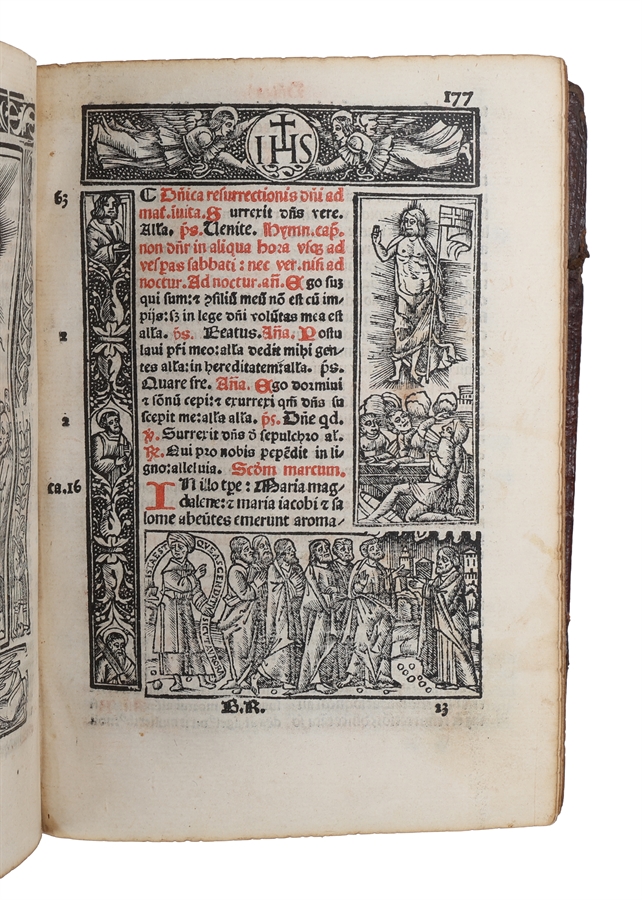 177
IHS
63
☾ Dñica resurrectionis dñi ad
mat. īuita. Surrexit dñs vere.
Alła. p̄s. Venite. Hymn. cap̄.
non dñr in aliqua hora vsq̄ ad
vesp̄as sabbati: nec ver. nisi ad
noctur. Ad noctur. añ. Ego suꝫ
qui sum: ⁊ ꝯsiliū meū nō est cū im-
pijs: sꝫ in lege dñi volūtas mea est
2
alła. p̄s. Beatus. Aña. Postu
laui pr̄i meo: alła dedit mihi gen-
tes alła: in hereditatem: alła. p̄s.
Quare fre. Aña. Ego dormiui
⁊ sōnū cepi: ⁊ exurrexi qm̄ dñs su
2
scepit me: alła alła. p̄s. Dñe qd.
℣. Surrexit dñs ð sepulchro al.
℟. Qui pro nobis pepēdit in li-
gno: alleluia. Scōm marcum.
ca.16
IN illo tp̄e: Maria mag
dalene: ⁊ maria iacobi ⁊ sa
lome abeūtes emerunt aroma-
B.R.
23